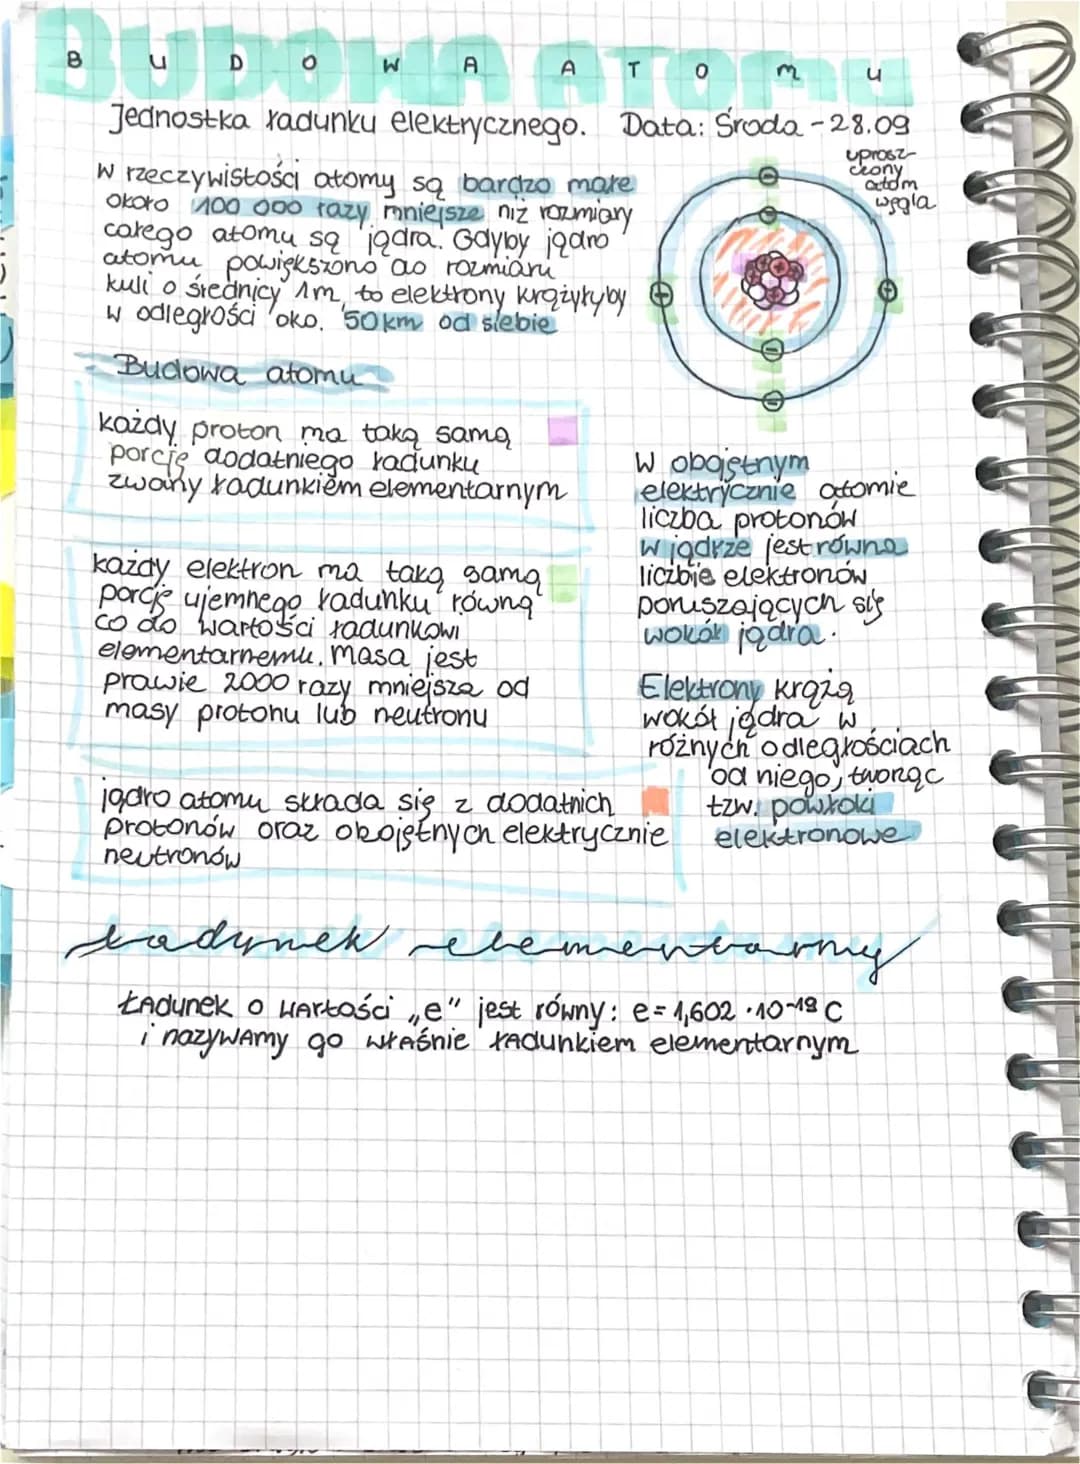 BUDOWA ATOMU
Jednostka ładunku elektrycznego. Data: Środa - 28.09
uprosz-
czony
atom
węgla
W rzeczywistości atomy są bardzo małe
około 100 000 razy mniejsze niż rozmiary
całego atomu są jądra. Gdyby jądro
atomu powiększono do rozmiaru
kuli o średnicy 1m, to elektrony krążyłyby
w odległości oko. 50km od siebie
Budowa atomu
każdy proton ma taką samą
porcję dodatniego ładunku
zwany ładunkiem elementarnym
każdy elektron ma taką samą
porcję ujemnego ładunku równą
co do wartości ładunkowi
elementarnemu. Masa jest
prawie 2000 razy mniejsza od
masy protonu lub neutronu
jądro atomu składa się z dodatnich
protonów oraz obojętnych elektrycznie
neutronów
W obojętnym
elektrycznie atomie
liczba protonów
w jądrze jest równa
liczbie elektronów
poruszających się
wokół jądra.
Elektrony krążą
wokół jądra w
różnych odległościach
od niego, tworząc
tzw. powłoki
elektronowe
Ładunek elementarny
ŁAdunek o wARtości „e" jest równy: e = 1,602 · 10-19 C
i nazywAmy go włAśnie łAdunkiem elementarnym